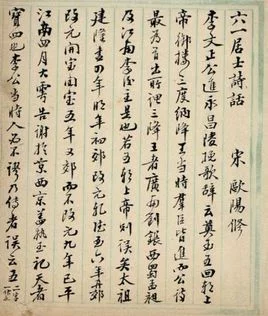 六一居士詩話 宋 歐陽修
李文正公進永昌陵挽歌辭云奠玉五回朝上
帝御樓三度納降王當時羣臣皆進而公詩
最為首出所謂三降王者廣南劉鋹西蜀孟昶
及江南李後主是也若五朝上帝則誤矣太祖
建隆盡四年明年初郊改元乾德至六年再郊
改元開寶開寶五年又郊而不改元九年已平
江南四月大雩告謝於京西京蓋執玉祀天者
實四也李公當時人必不謬乃傳者誤云五